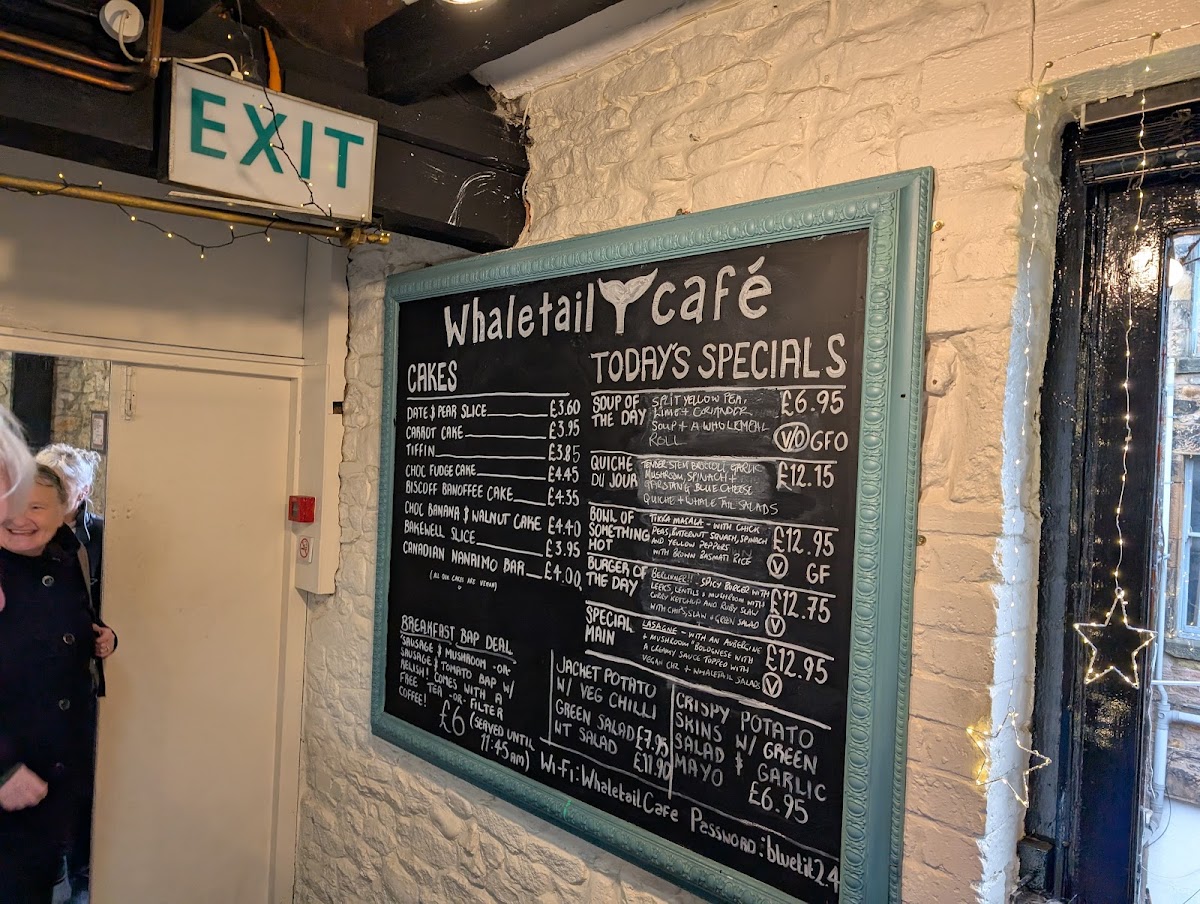 EXIT
Whaletail café
CAKES
DATE & PEAR SLICE £3.60
CARROT CAKE £3.95
TIFFIN £3.85
CHOC FUDGE CAKE £4.45
BISCOFF BANOFFEE CAKE £4.35
CHOC BANANA & WALNUT CAKE £4.40
BAKEWELL SLICE £3.95
CANADIAN NANAIMO BAR £4.00
(ALL OUR CAKES ARE VEGAN)
BREAKFAST BAP DEAL
SAUSAGE & MUSHROOM -OR-
SAUSAGE & TOMATO BAP W/
RELISH! COMES WITH A
FREE TEA -OR- FILTER
COFFEE!
£6 (SERVED UNTIL
11:45am)
TODAY'S SPECIALS
SOUP OF
THE DAY
SPLIT YELLOW PEA,
LIME + CORIANDER
SOUP + A WHOLEMEAL
ROLL
£6.95
V/O GFO
QUICHE
DU JOUR
TENDER STEM BROCCOLI, GARLIC
MUSHROOM, SPINACH +
GARSTANG BLUE CHEESE
QUICHE + WHALE TAIL SALADS
£12.15
BOWL OF
SOMETHING
HOT
TIKKA MASALA - WITH CHICK
PEAS, BUTTERNUT SQUASH, SPINACH
AND YELLOW PEPPERS
WITH BROWN BASMATI RICE
£12.95
V GF
BURGER OF
THE DAY
- SPICY BURGER WITH
LEEKS, LENTILS & MUSHROOM WITH
CURRY KETCHUP AND RUBY SLAW
WITH CHIPS, SLAW + GREEN SALAD
£12.75
V
SPECIAL
MAIN
LASAGNE - WITH AN AUBERGINE
+ MUSHROOM "BOLOGNESE WITH
A CREAMY SAUCE TOPPED WITH
VEGAN CHZ + WHALETAIL SALADS
£12.95
V
JACKET POTATO
W/ VEG CHILLI
GREEN SALAD £7.95
WT SALAD £11.90
CRISPY POTATO
SKINS W/ GREEN
SALAD & GARLIC
MAYO £6.95
Wi-Fi: WhaletailCafe Password: bluetit24